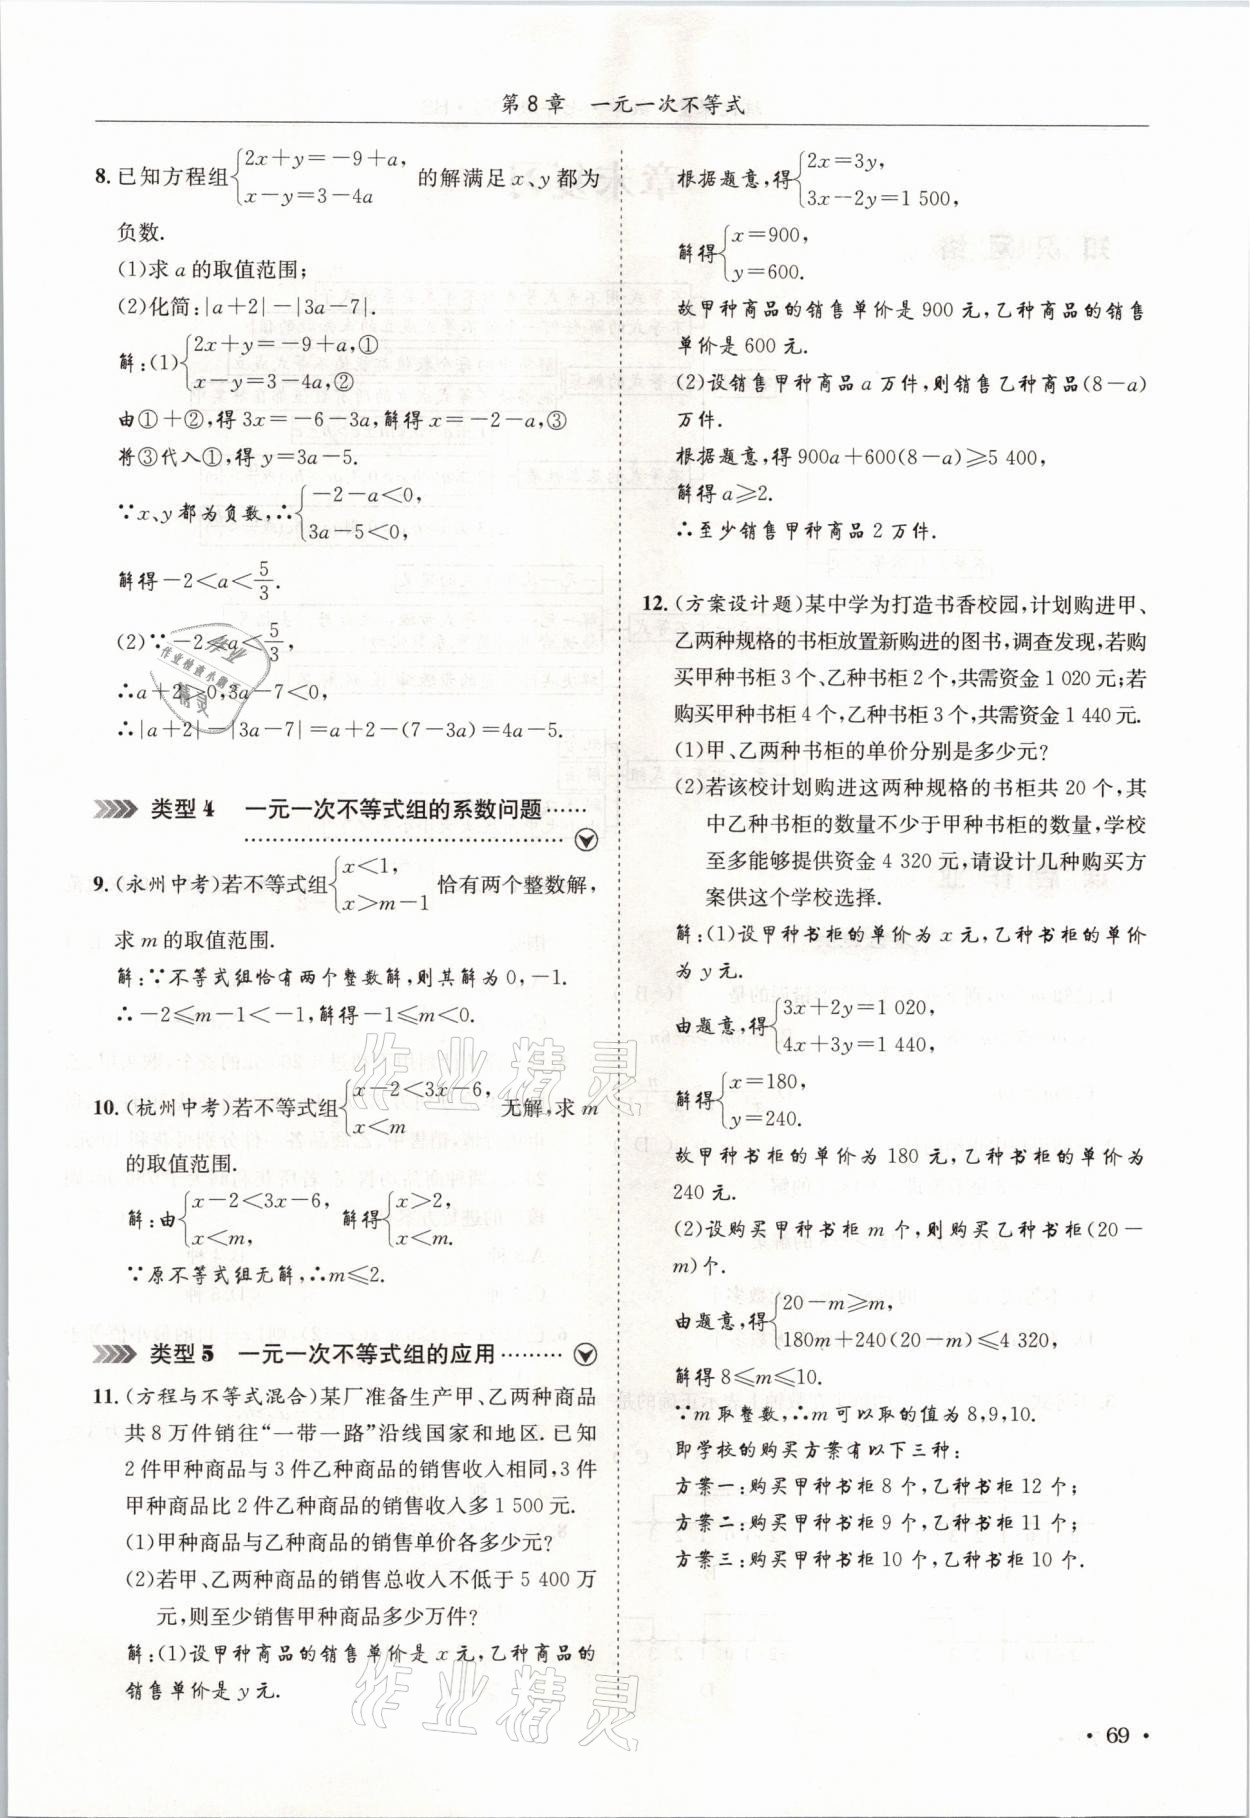 第8章　一元一次不等式
8. 已知方程组{2x+y=-9+a, x-y=3-4a 的解满足x、y都为
负数.
(1)求a的取值范围;
(2)化简:|a+2|-|3a-7|.
解:(1){2x+y=-9+a,① x-y=3-4a,②
由①+②,得3x=-6-3a,解得x=-2-a,③
将③代入①,得y=3a-5.
∵x、y都为负数,∴{-2-a<0, 3a-5<0,
解得-2<a<5/3.
(2)∵-2<a<5/3,
∴a+2>0,3a-7<0,
∴|a+2|-|3a-7|=a+2-(7-3a)=4a-5.
类型4　一元一次不等式组的系数问题……
9. (永州中考)若不等式组{x<1, x>m-1 恰有两个整数解,
求m的取值范围.
解:∵不等式组恰有两个整数解,则其解为0,-1.
∴-2≤m-1<-1,解得-1≤m<0.
10. (杭州中考)若不等式组{x-2<3x-6, x<m 无解,求m
的取值范围.
解:由{x-2<3x-6, x<m, 解得{x>2, x<m.
∵原不等式组无解,∴m≤2.
类型5　一元一次不等式组的应用………
11. (方程与不等式混合)某厂准备生产甲、乙两种商品
共8万件销往“一带一路”沿线国家和地区.已知
2件甲种商品与3件乙种商品的销售收入相同,3件
甲种商品比2件乙种商品的销售收入多1 500元.
(1)甲种商品与乙种商品的销售单价各多少元?
(2)若甲、乙两种商品的销售总收入不低于5 400万
元,则至少销售甲种商品多少万件?
解:(1)设甲种商品的销售单价是x元,乙种商品的
销售单价是y元.
根据题意,得{2x=3y, 3x-2y=1 500,
解得{x=900, y=600.
故甲种商品的销售单价是900元,乙种商品的销售
单价是600元.
(2)设销售甲种商品a万件,则销售乙种商品(8-a)
万件.
根据题意,得900a+600(8-a)≥5 400,
解得a≥2.
∴至少销售甲种商品2万件.
12. (方案设计题)某中学为打造书香校园,计划购进甲、
乙两种规格的书柜放置新购进的图书,调查发现,若购
买甲种书柜3个、乙种书柜2个,共需资金1 020元;若
购买甲种书柜4个,乙种书柜3个,共需资金1 440元.
(1)甲、乙两种书柜的单价分别是多少元?
(2)若该校计划购进这两种规格的书柜共20个,其
中乙种书柜的数量不少于甲种书柜的数量,学校
至多能够提供资金4 320元,请设计几种购买方
案供这个学校选择.
解:(1)设甲种书柜的单价为x元,乙种书柜的单价
为y元.
由题意,得{3x+2y=1 020, 4x+3y=1 440,
解得{x=180, y=240.
故甲种书柜的单价为180元,乙种书柜的单价为
240元.
(2)设购买甲种书柜m个,则购买乙种书柜(20-
m)个.
由题意,得{20-m≥m, 180m+240(20-m)≤4 320,
解得8≤m≤10.
∵m取整数,∴m可以取的值为8,9,10.
即学校的购买方案有以下三种:
方案一:购买甲种书柜8个,乙种书柜12个;
方案二:购买甲种书柜9个,乙种书柜11个;
方案三:购买甲种书柜10个,乙种书柜10个.
作业精灵
作业精灵
作业
作业检查小助手
精灵
·69·